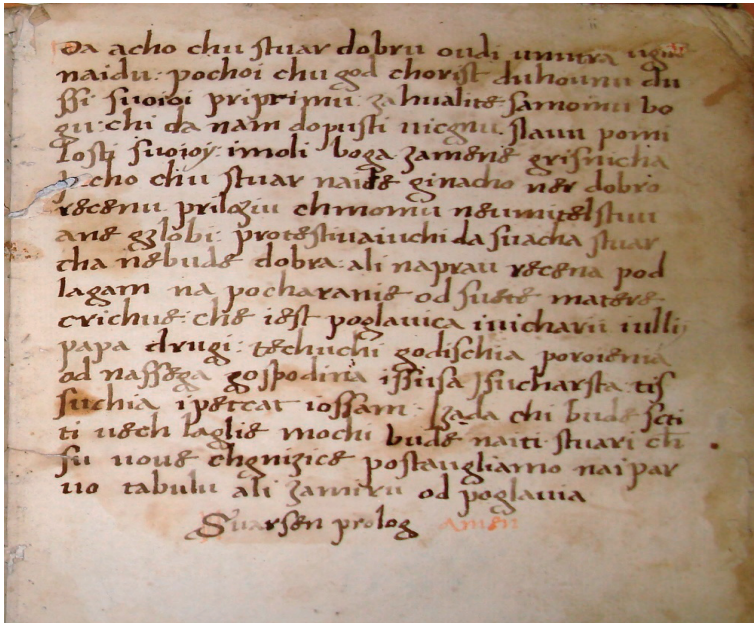 Da acho chu stuar dobru ovdi unutra ugnu
naidu: pochoi chu god chorist duhounu du
ssi suoioi priprimu: zahualite samomu bo
gu: chi da nam dopusti nicgnu. slauu pomi
losti suoioy: imoli boga zamene grisnicha
Acho chu stuar naide ginacho ner dobro
recenu prilogiu chmomu neumitelstuu
ane gzlobi: protestuaiuchi da suacha stuar
cha nebude dobra: ali naprau recena pod
lagam na pocharanie od suete matere
crichue: che iest poglauica iuicharii iulli
papa drugi: techuchi godischia poroienia
od nassega gospodina issusa Isucharsta: tis
suchia ipetcat iossam: Izada chi bude scti
ti uech laglie mochi bude naiti stuari ch
su uoue chgnizice postaugliamo nai par
uo tabulu ali zamiru od poglauia
Suarsen prolog Amen